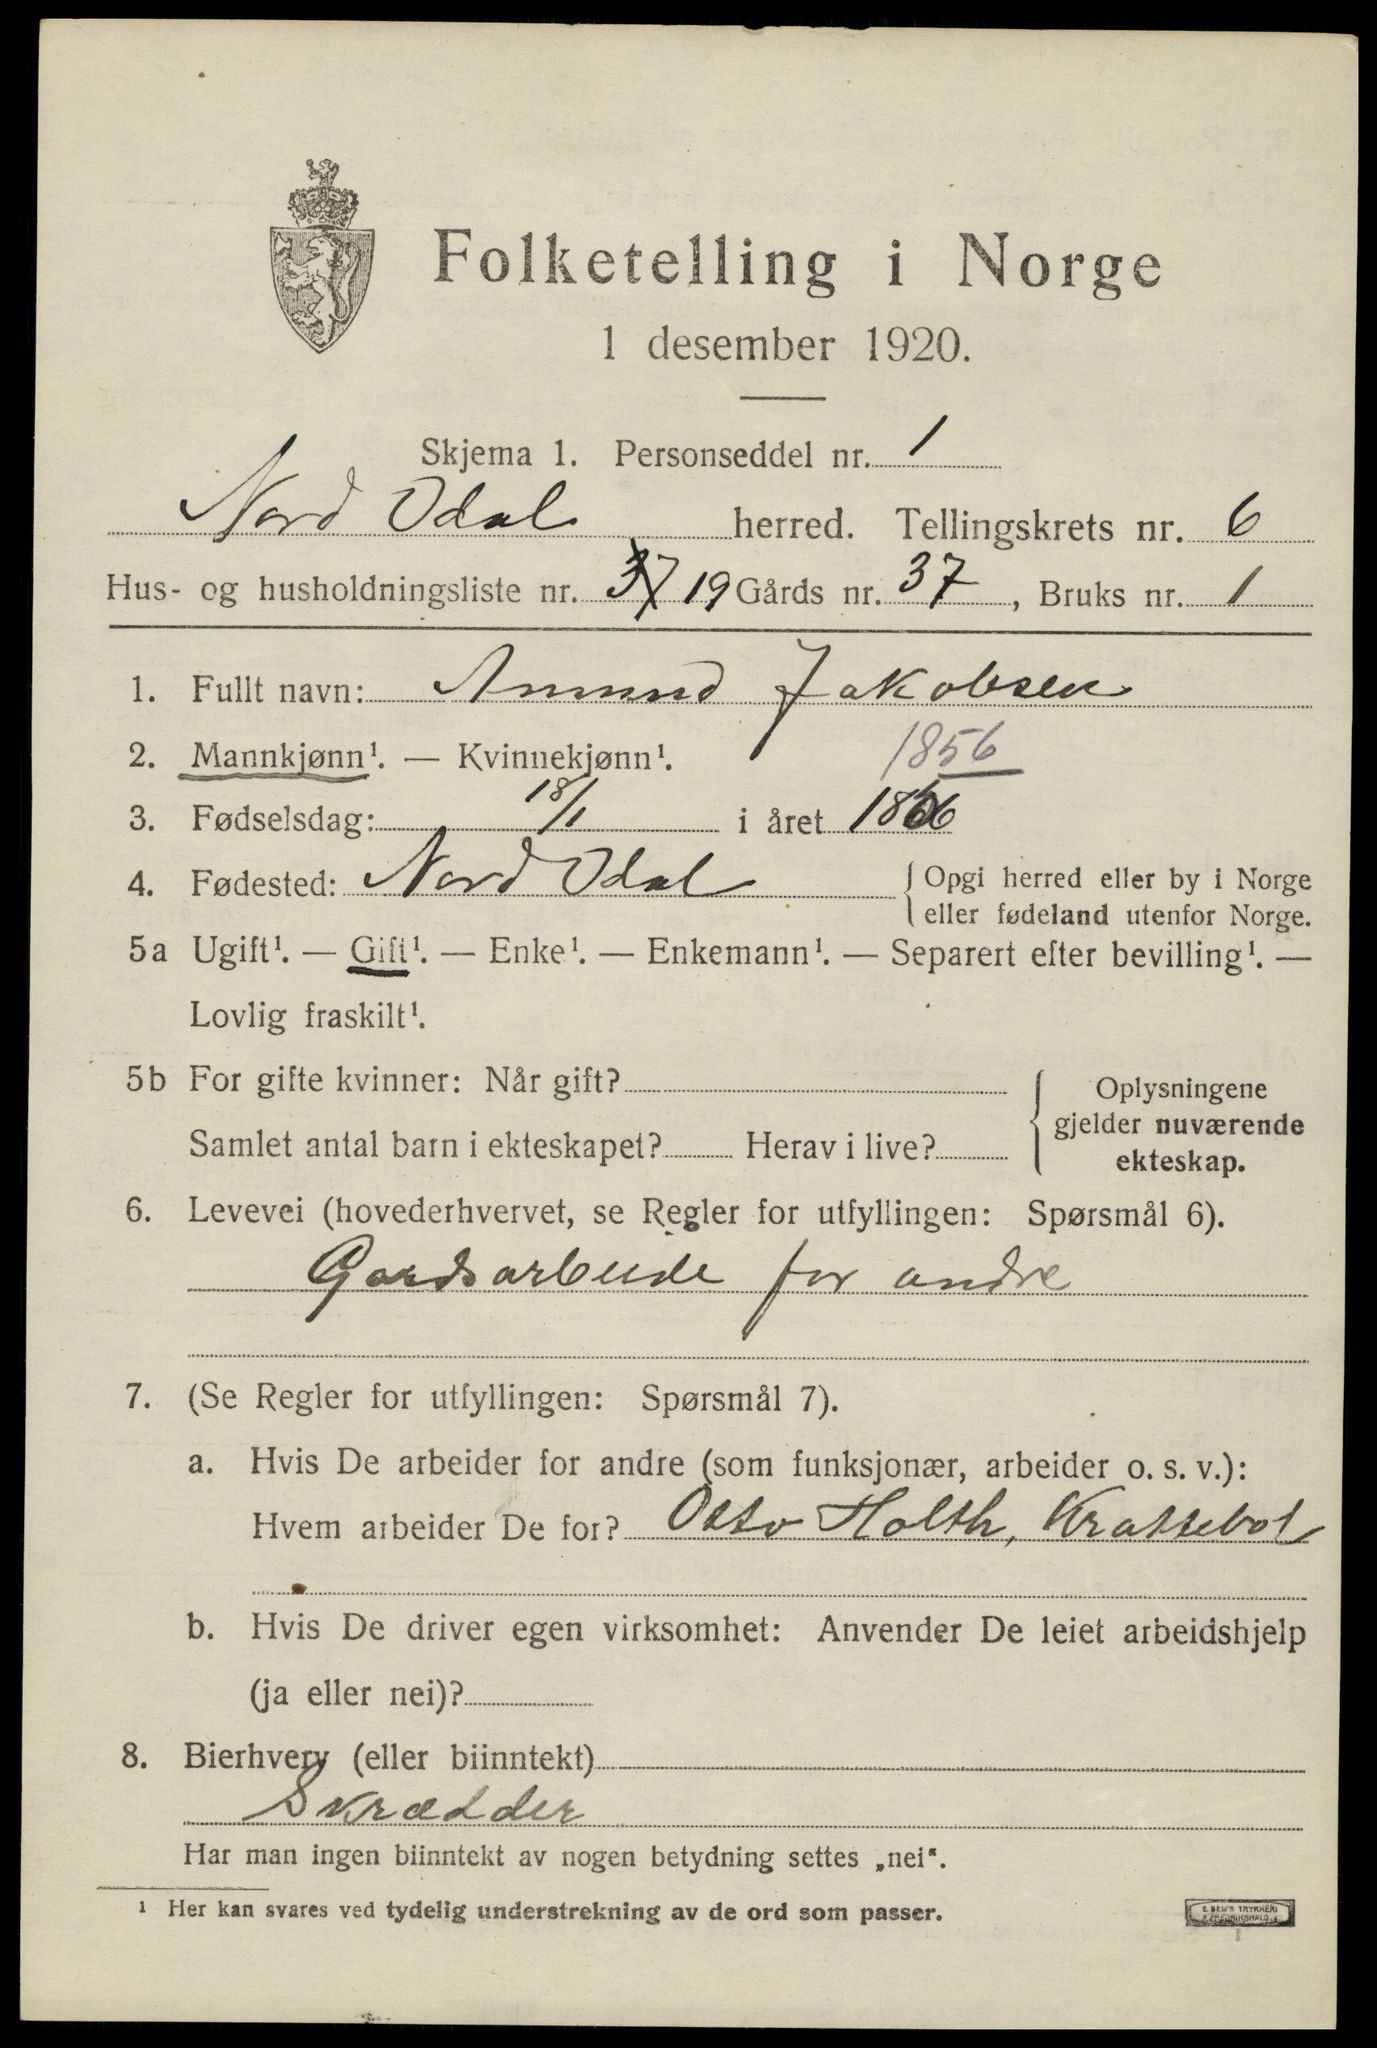 Folketelling i Norge
1 desember 1920.
Skjema 1. Personseddel nr. 1
Nord Odal herred. Tellingskrets nr. 6
Hus- og husholdningsliste nr. 37 19 Gårds nr. 37, Bruks nr. 1
1. Fullt navn: Amund Jakobsen
2. Mannkjønn¹. — Kvinnekjønn¹. 1856
3. Fødselsdag: 18/1 i året 1856
4. Fødested: Nord Odal { Opgi herred eller by i Norge
eller fødeland utenfor Norge.
5a Ugift¹. — Gift¹. — Enke¹. — Enkemann¹. — Separert efter bevilling¹. —
Lovlig fraskilt¹.
5b For gifte kvinner: Når gift?
Samlet antal barn i ekteskapet? Herav i live?
{ Oplysningene
gjelder nuværende
ekteskap.
6. Levevei (hovederhvervet, se Regler for utfyllingen: Spørsmål 6).
Gardsarbeide for andre
7. (Se Regler for utfyllingen: Spørsmål 7).
a. Hvis De arbeider for andre (som funksjonær, arbeider o. s. v.):
Hvem arbeider De for? Otto Holth, Krattebøl
b. Hvis De driver egen virksomhet: Anvender De leiet arbeidshjelp
(ja eller nei)?
8. Bierhverv (eller biinntekt)
Skrædder
Har man ingen biinntekt av nogen betydning settes „nei“.
¹ Her kan svares ved tydelig understrekning av de ord som passer.
E. SEM'S TRYKKERI
FREDRIKSHALD